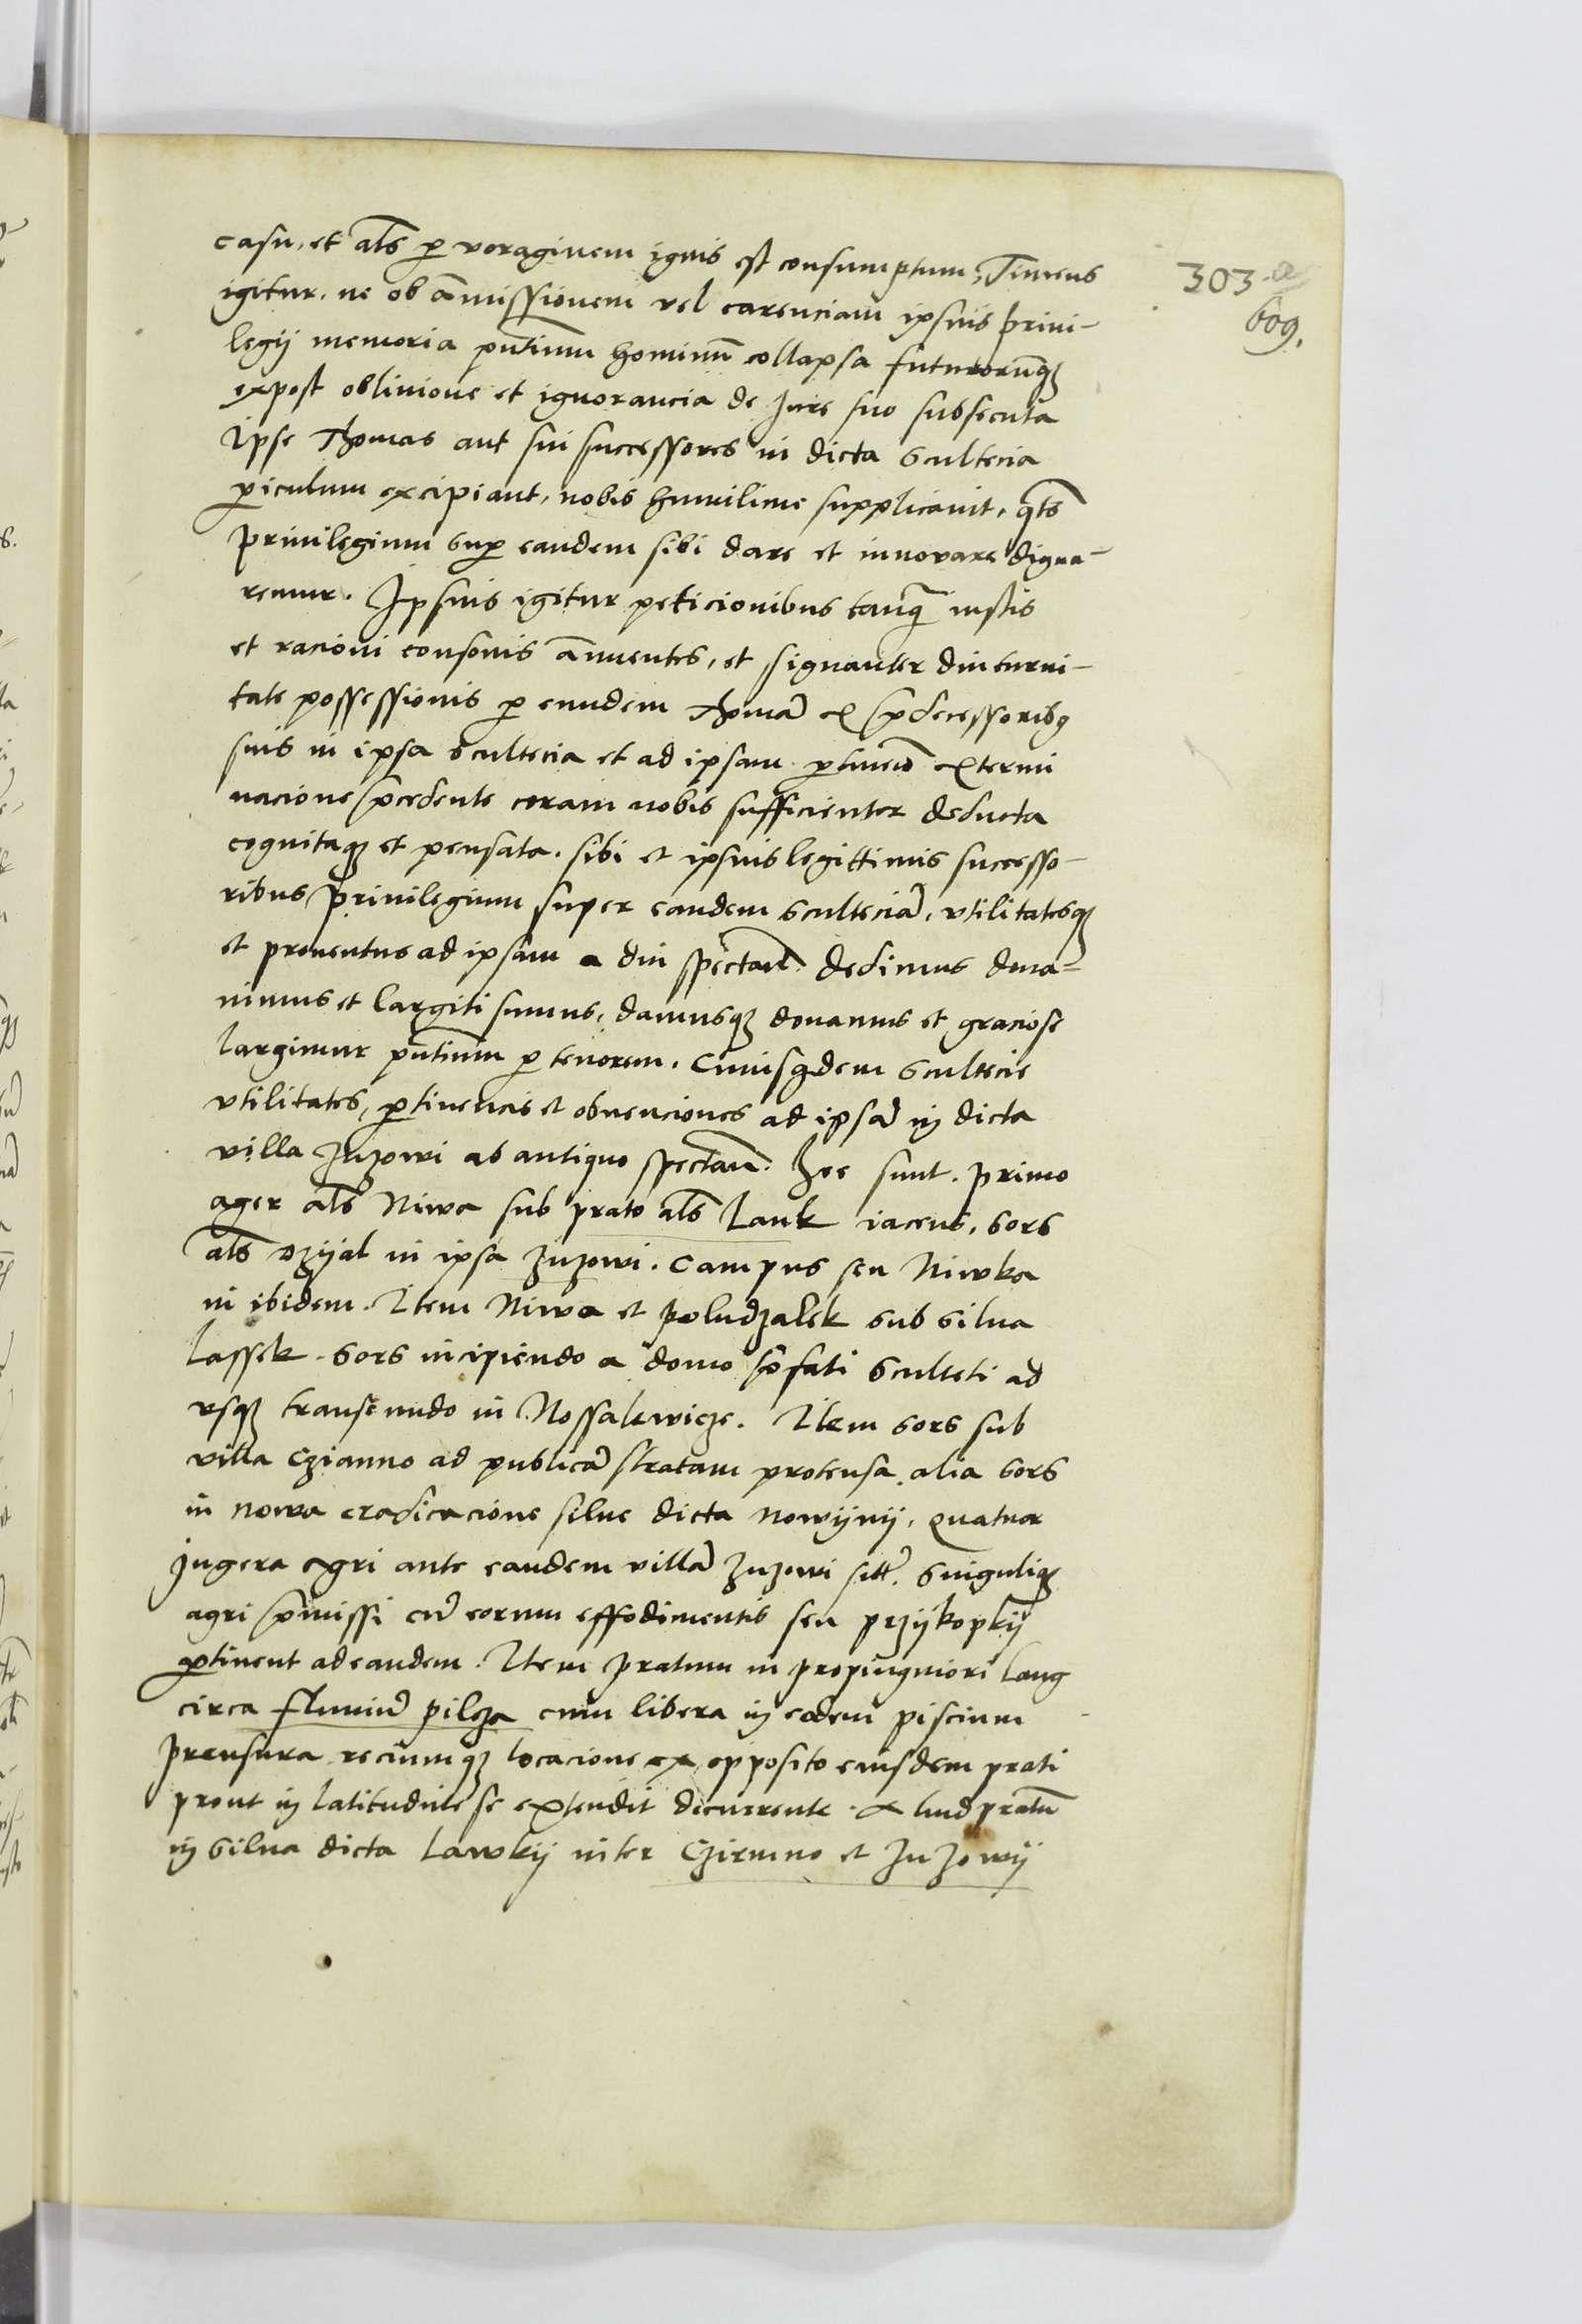 casu, et als per voraginem ignis est consumptum, Timens
303.a
igitur. ne ob amissionem vel carenciam ipsius privi-
609.
legij memoria pntium hominum collapsa futurorumq
expost oblivione et ignorancia de Jure suo subsecuta
Ipse Thomas aut sui successores in dicta scultecia
periculum excipiant, nobis humilime supplicavit, qts
privilegium super eandem sibi dare et innovare digna-
remur. Ipsius igitur peticionibus tanq iustis
et racioni consonis annuentes, et signanter diuturni-
tate possessionis per eundem Thoma et predecessoribus
suis in ipsa scultecia et ad ipsam pertinen extermi
nacione precedente coram nobis sufficienter deducta
cognitaq et pensata. sibi et ipsius legittimis successo-
ribus privilegium super eandem sculteciam, vtilitatesq
et proventus ad ipsam a diu spectan dedimus dona-
nimus et largiti sumus, damusq donamus et graciose
largimur pntium per tenorem. Cuiusquidem scultecie
vtilitates, pertinencias et obvenciones ad ipsam in dicta
villa Zuzowi ab antiquo spectan. hee sunt. primo
ager als Niwa sub prato als Lauk iacens. sors
als dzyal in ipsa Zuzowi. Campus seu Niwka
in ibidem. Item Niwa et poludzalek sub silva
Lassek. sors incipiendo a domo prefati sculteti ad
vsq transeundo in Nossalewicze. Item sors sub
villa Czianno ad publicam stratam protensa. alia sors
in nowa eradicacione silve dicta nowijnij. quatuor
Jugera agri ante eandem villam Zuzowi sitt. singuliq
agri premissi cum eorum effodimentis seu przijkopkij
pertinent ad eandem. Item pratum in propinquiori Laug
circa fluvium pilcza cum libera in eodem piscium
prensura reciumq locacione ex opposito eiusdem prati
prout in latitudine se extendit decurrente. aliud pratum
in silva dicta Lawkij inter Czirnno et Zuzowij